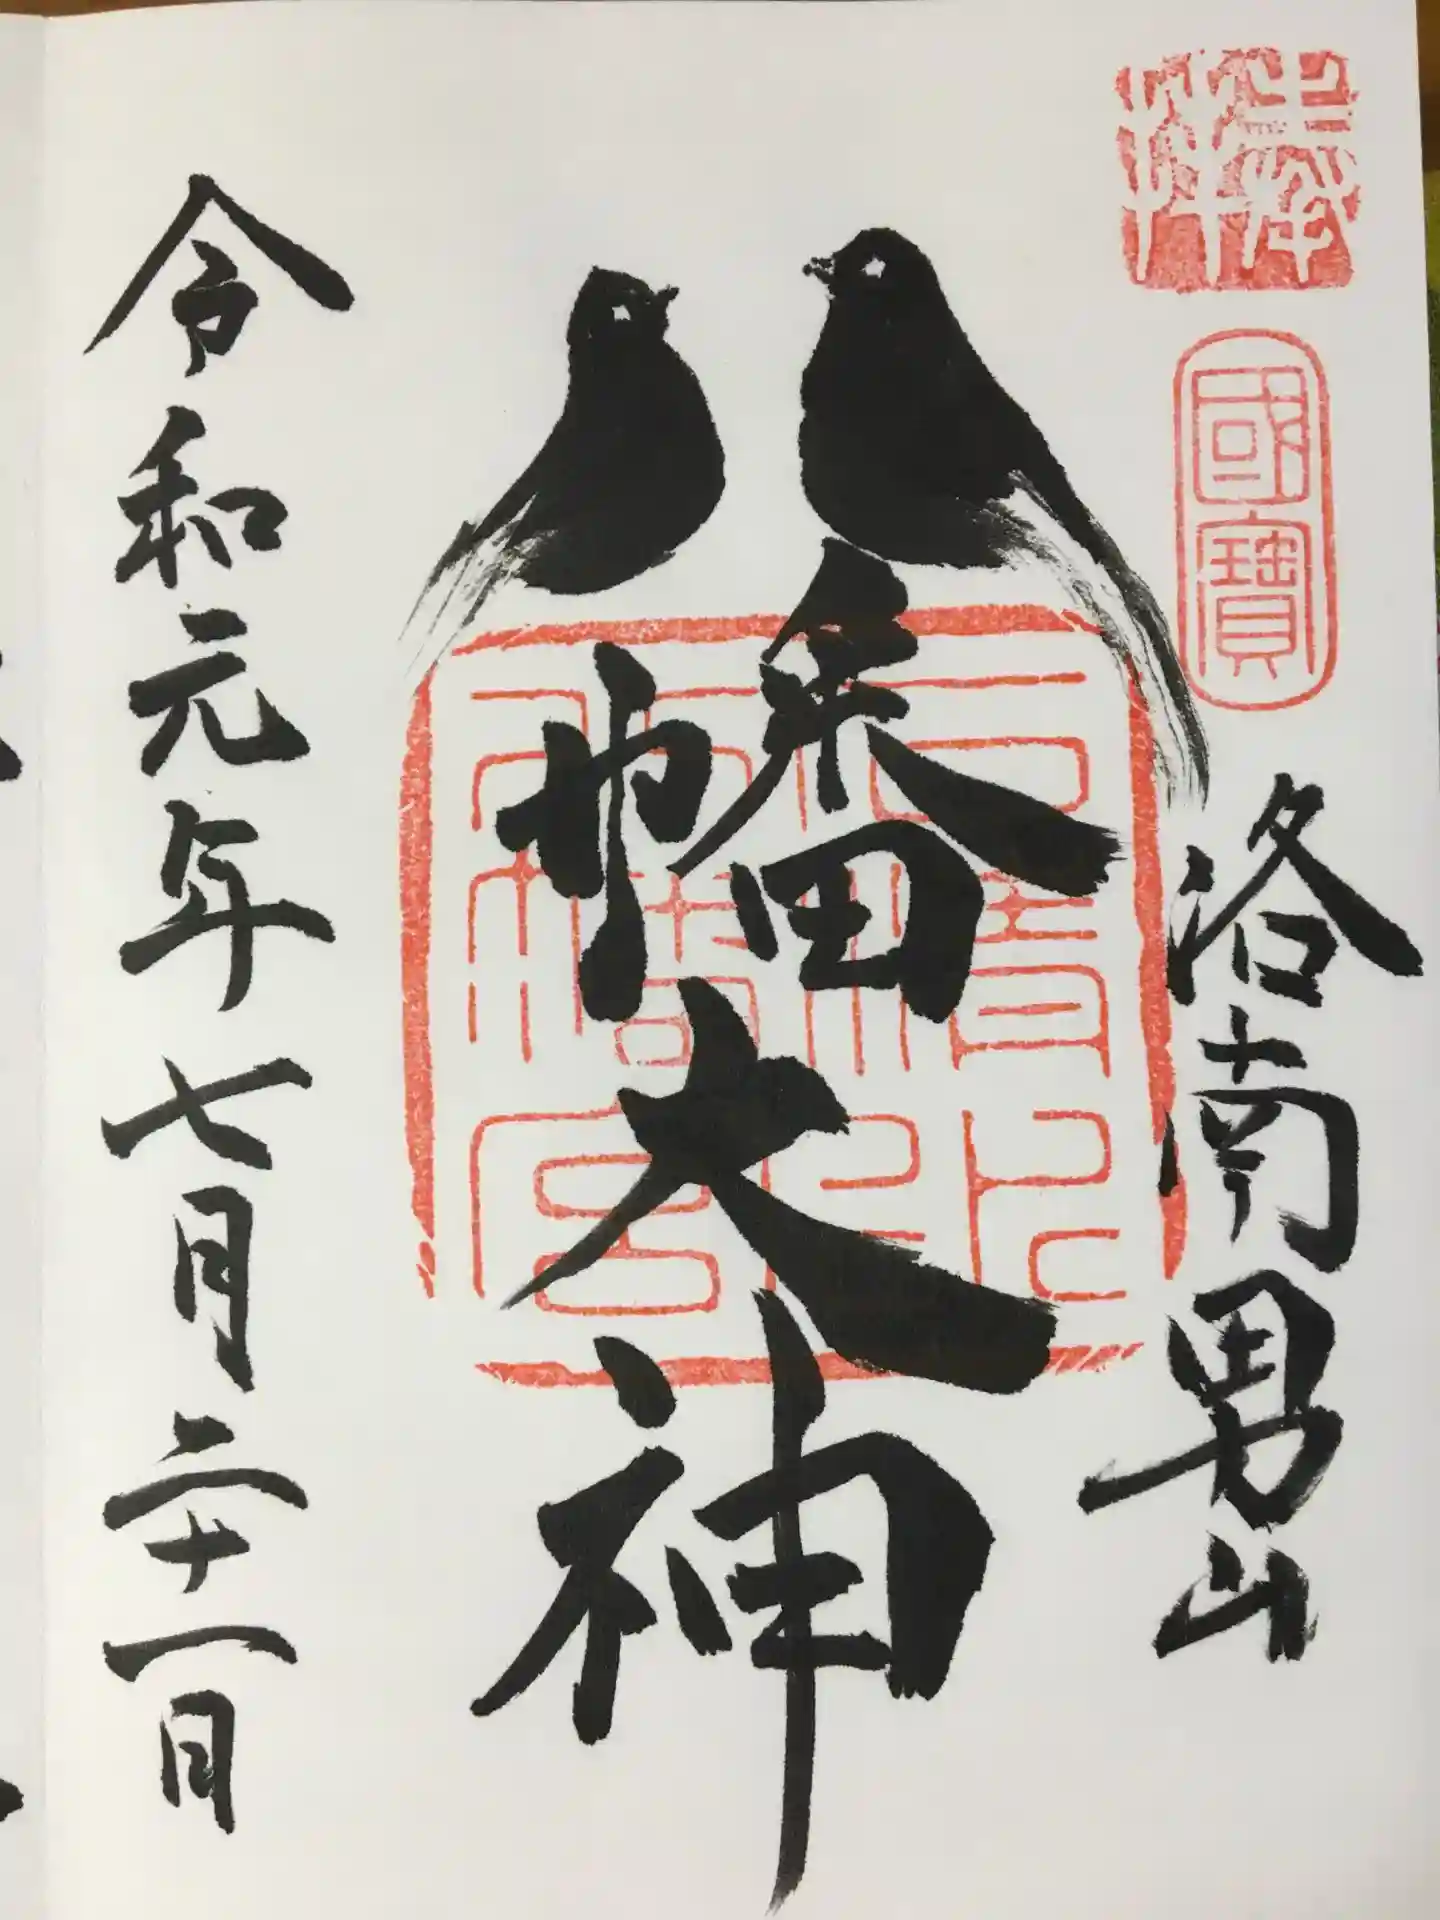 奉拝
國寶
洛南男山
八幡大神
石清水
八幡宮
令和元年七月二十一日